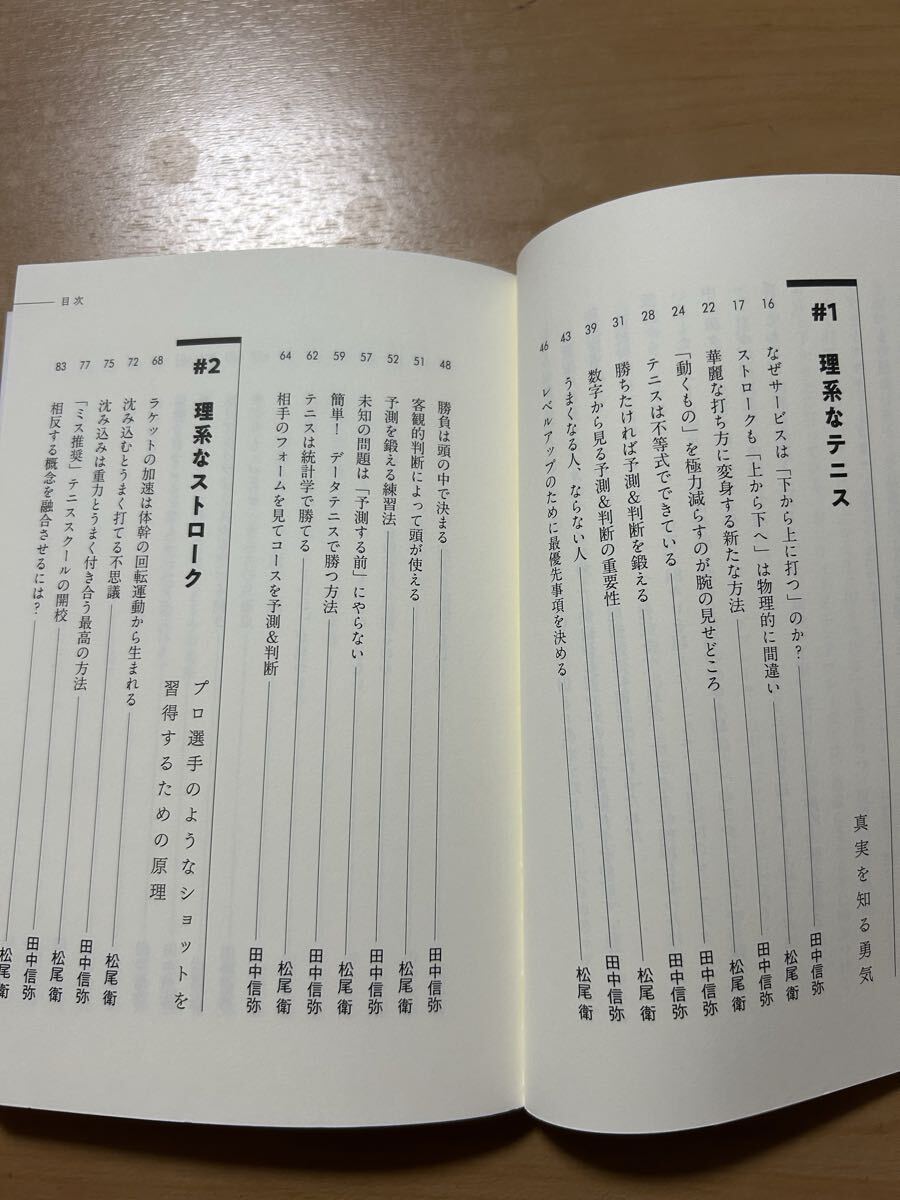 #1 理系なテニス
真実を知る勇気
16 なぜサービスは「下から上に打つ」のか? 田中信弥
17 ストロークも「上から下へ」は物理的に間違い 松尾 衛
22 華麗な打ち方に変身する新たな方法 田中信弥
24 「動くもの」を極力減らすのが腕の見せどころ 松尾 衛
28 テニスは不等式でできている 田中信弥
31 勝ちたければ予測&判断を鍛える 田中信弥
39 数字から見る予測&判断の重要性 松尾 衛
43 うまくなる人、ならない人 田中信弥
46 レベルアップのために最優先事項を決める 松尾 衛
目次
48 勝負は頭の中で決まる 田中信弥
51 客観的判断によって頭が使える 松尾 衛
52 予測を鍛える練習法 田中信弥
57 未知の問題は「予測する前」にやらない 松尾 衛
59 簡単! データテニスで勝つ方法 田中信弥
62 テニスは統計学で勝てる 松尾 衛
64 相手のフォームを見てコースを予測&判断 田中信弥
#2 理系なストローク
プロ選手のようなショットを
習得するための原理
68 ラケットの加速は体幹の回転運動から生まれる 松尾 衛
72 沈み込むとうまく打てる不思議 田中信弥
75 沈み込みは重力とうまく付き合う最高の方法 松尾 衛
77 「ミス推奨」テニススクールの開校 田中信弥
83 相反する概念を融合させるには? 松尾 衛